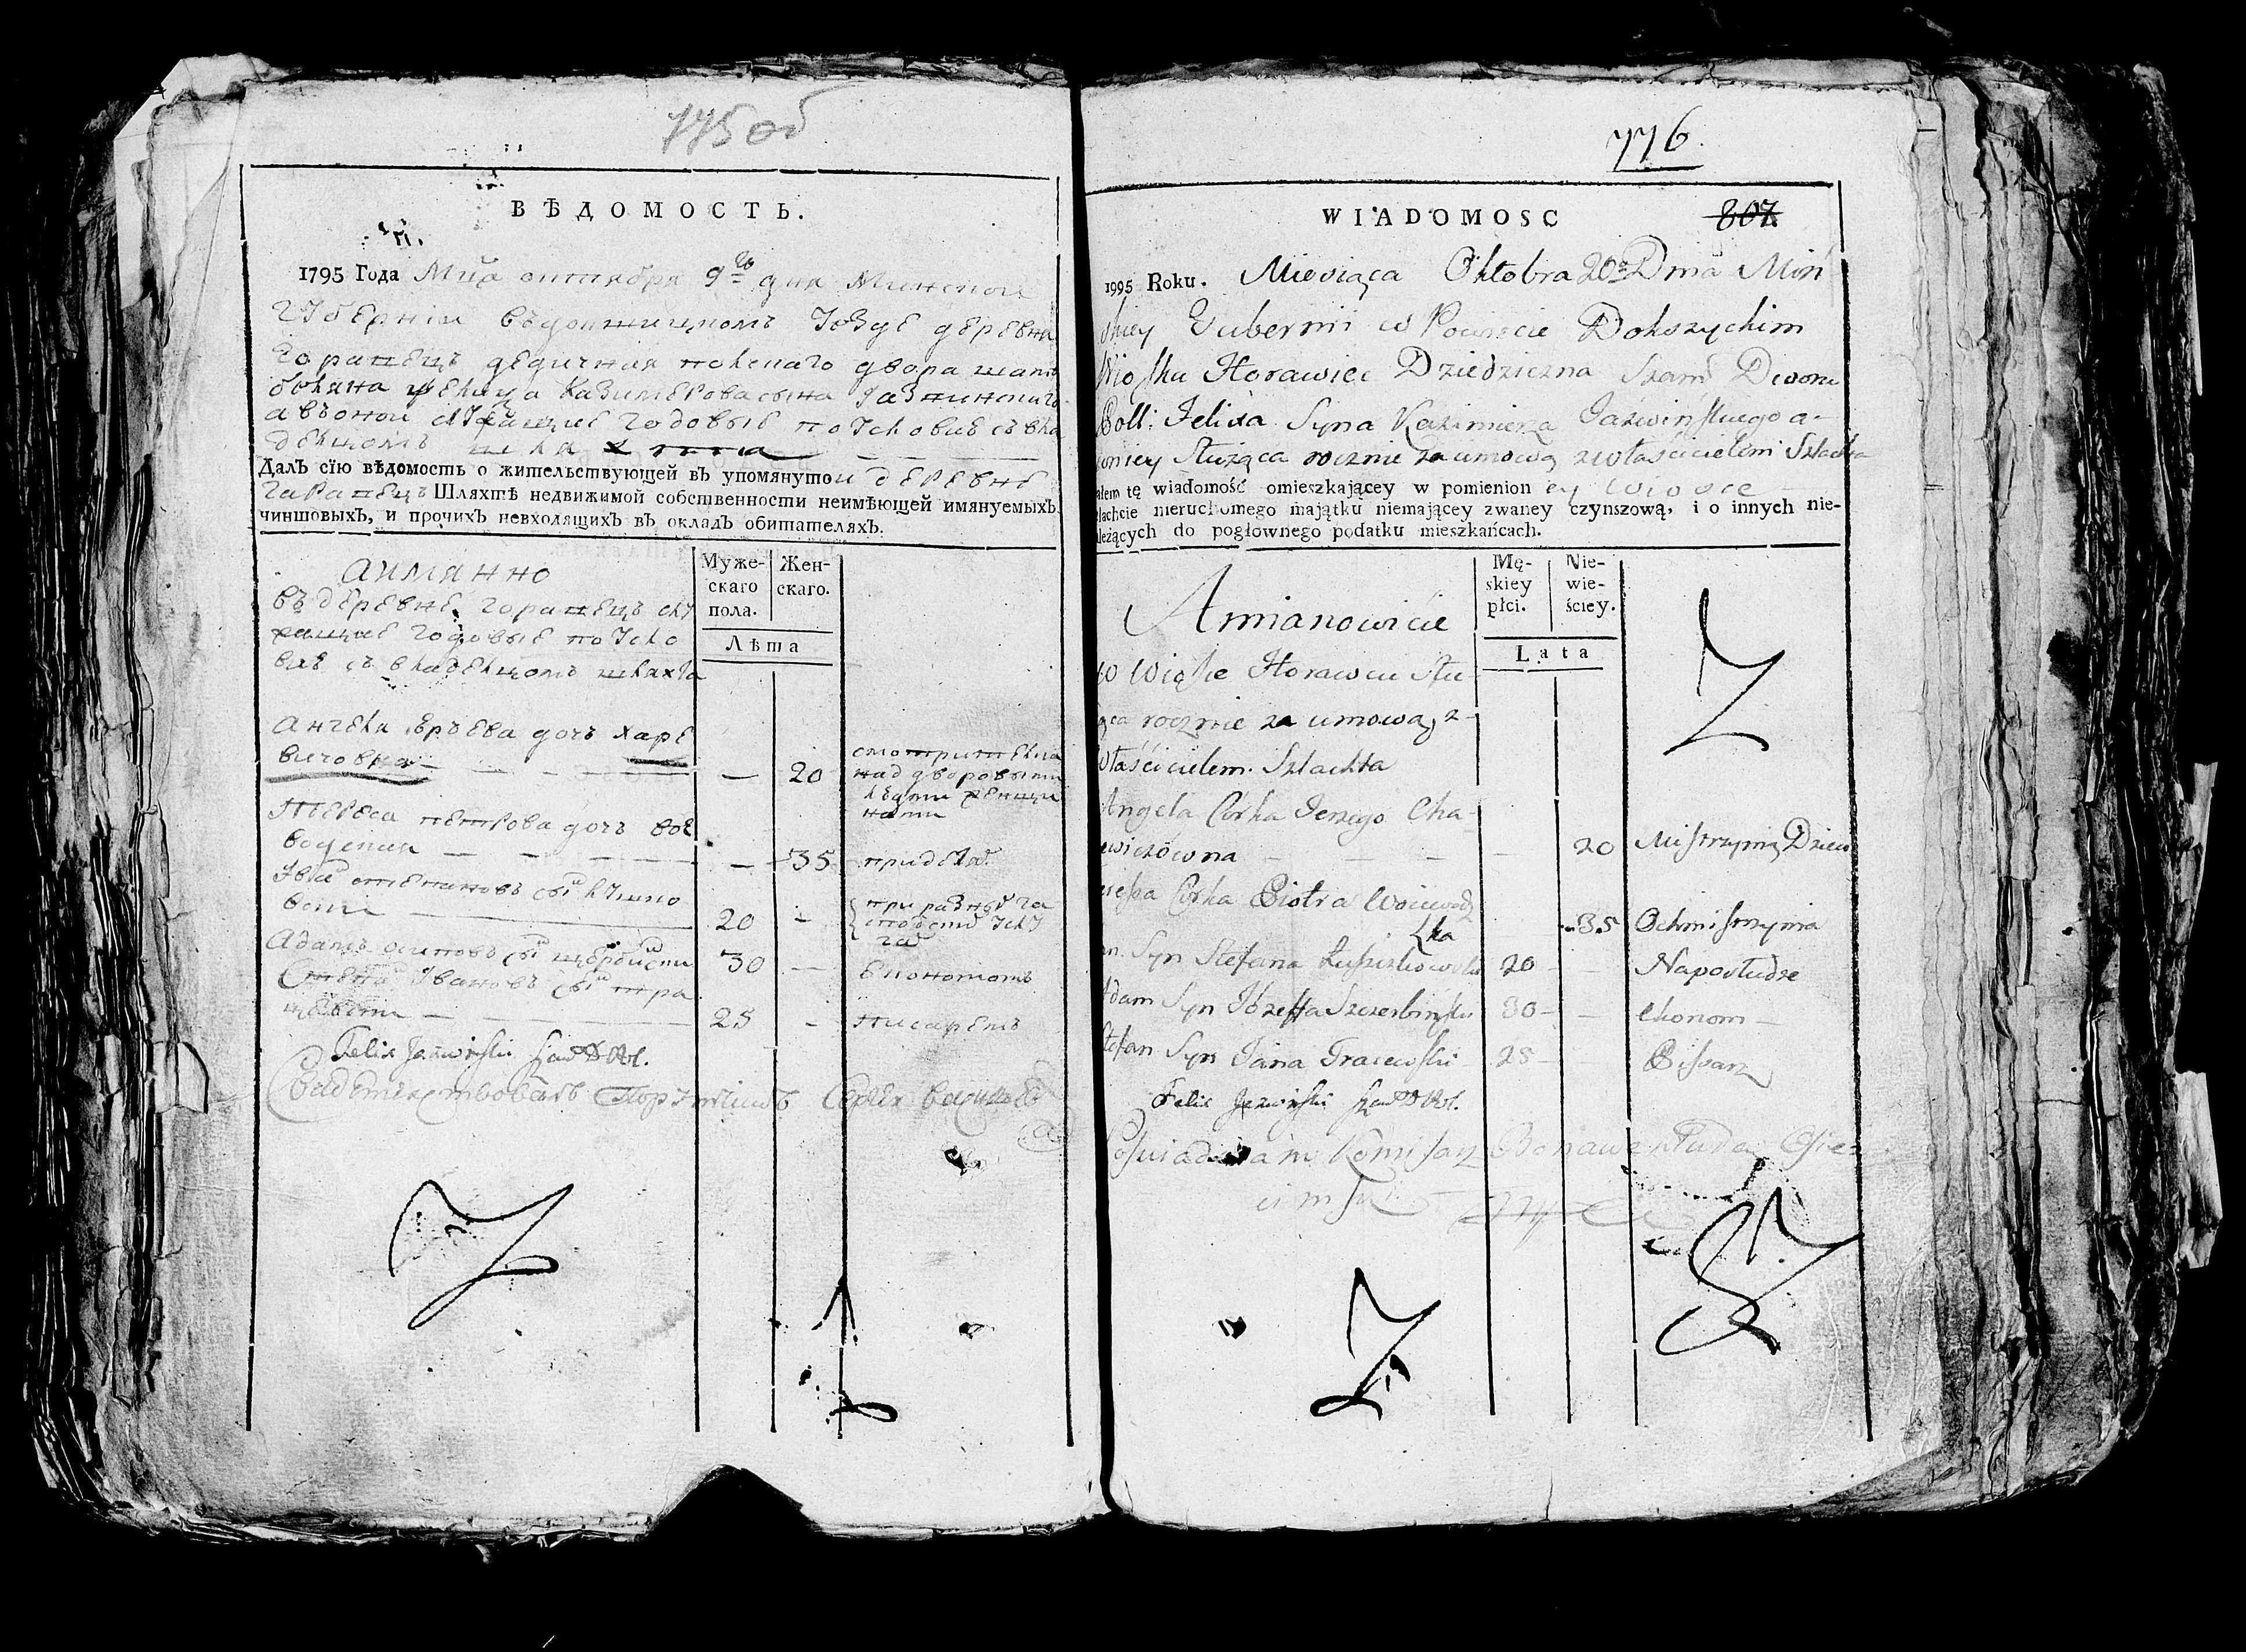 775 об
ВѢДОМОСТЬ.
1795 Года Мца октября 9го дня Минской
Губерніи въ докшицкомъ уезде деревня
горавецъ дедичная полскаго двора шам
беляна феликса Казимерова сына Язвинскаго
а въоной служащие годовые по условие съ вла
делцомъ шляхта
Далъ сїю вѣдомость о жительствующей въ упомянутои деревне
гаравецъ Шляхтѣ недвижимой собственности неимѣющей имянуемыхъ
чиншовыхъ, и прочихъ невходящихъ въ окладъ обитателяхъ.
Муже-
скаго
пола.
Жен-
скаго.
Лѣта
аимянно
въ деревне горавецъ слу
жащие годовые по усло
вие съ владелцомъ шляхта
Ангела Еръева дочь харе
вичовна — — — — 20 смотрителна
над дворовыми
людми женщи
нами
Тереса петрова дочь вое
водская — — — — 35 при
Степановъ сы
20 — при разны
Адамъ осиповъ сы щербински 30 — Економомъ
Стефа Ивановъ сы тра
цевски — 25 - писаремъ
Felix Jaźwiński Szam D Pol.
Свидетелствовалъ Порутчикъ Сергей
776.
WIADOMOSC
807.
1995 Roku. Miesiąca Oktobra 20o Dnia Miń
skiey Gubernii w Powiecie Dokszyckim
Wioska Horawiec Dziedziczna Szam Dworu
Poll: Felixa Syna Kazimierza Jazwińskiego a-
woniey służąca rocznie za umową zwłaścicielem Szlachta
ałem tę wiadomość omieszkającey w pomienioney Wiosce
zlachcie nieruchomego majątku niemającey zwaney czynszową, i o innych nie-
leżących do pogłownego podatku mieszkańcach.
Mę-
skiey
płci.
Nie-
wie-
ściey.
Lata
Amianowicie
w Wiosce Horawcu słu-
żąca rocznie za umową z-
właścicielem. Szlachta
Angela Córka Jerzego Cha-
rewiczówna — — — 20 Mistrzynią Dziew
eressa Córka Piotra Woiewodz
ka 35 Ochmistrzynia
an. Syn Stefana 20 — Naposłudze
Adam Syn Józeffa Szczerbiński 30 — — ekonom —
Stefan Syn Jana Tracewski 25 — — Pissarz
Felix Jaźwiński Szam D Pol.
Poświadczam Komisarz Bonawentura